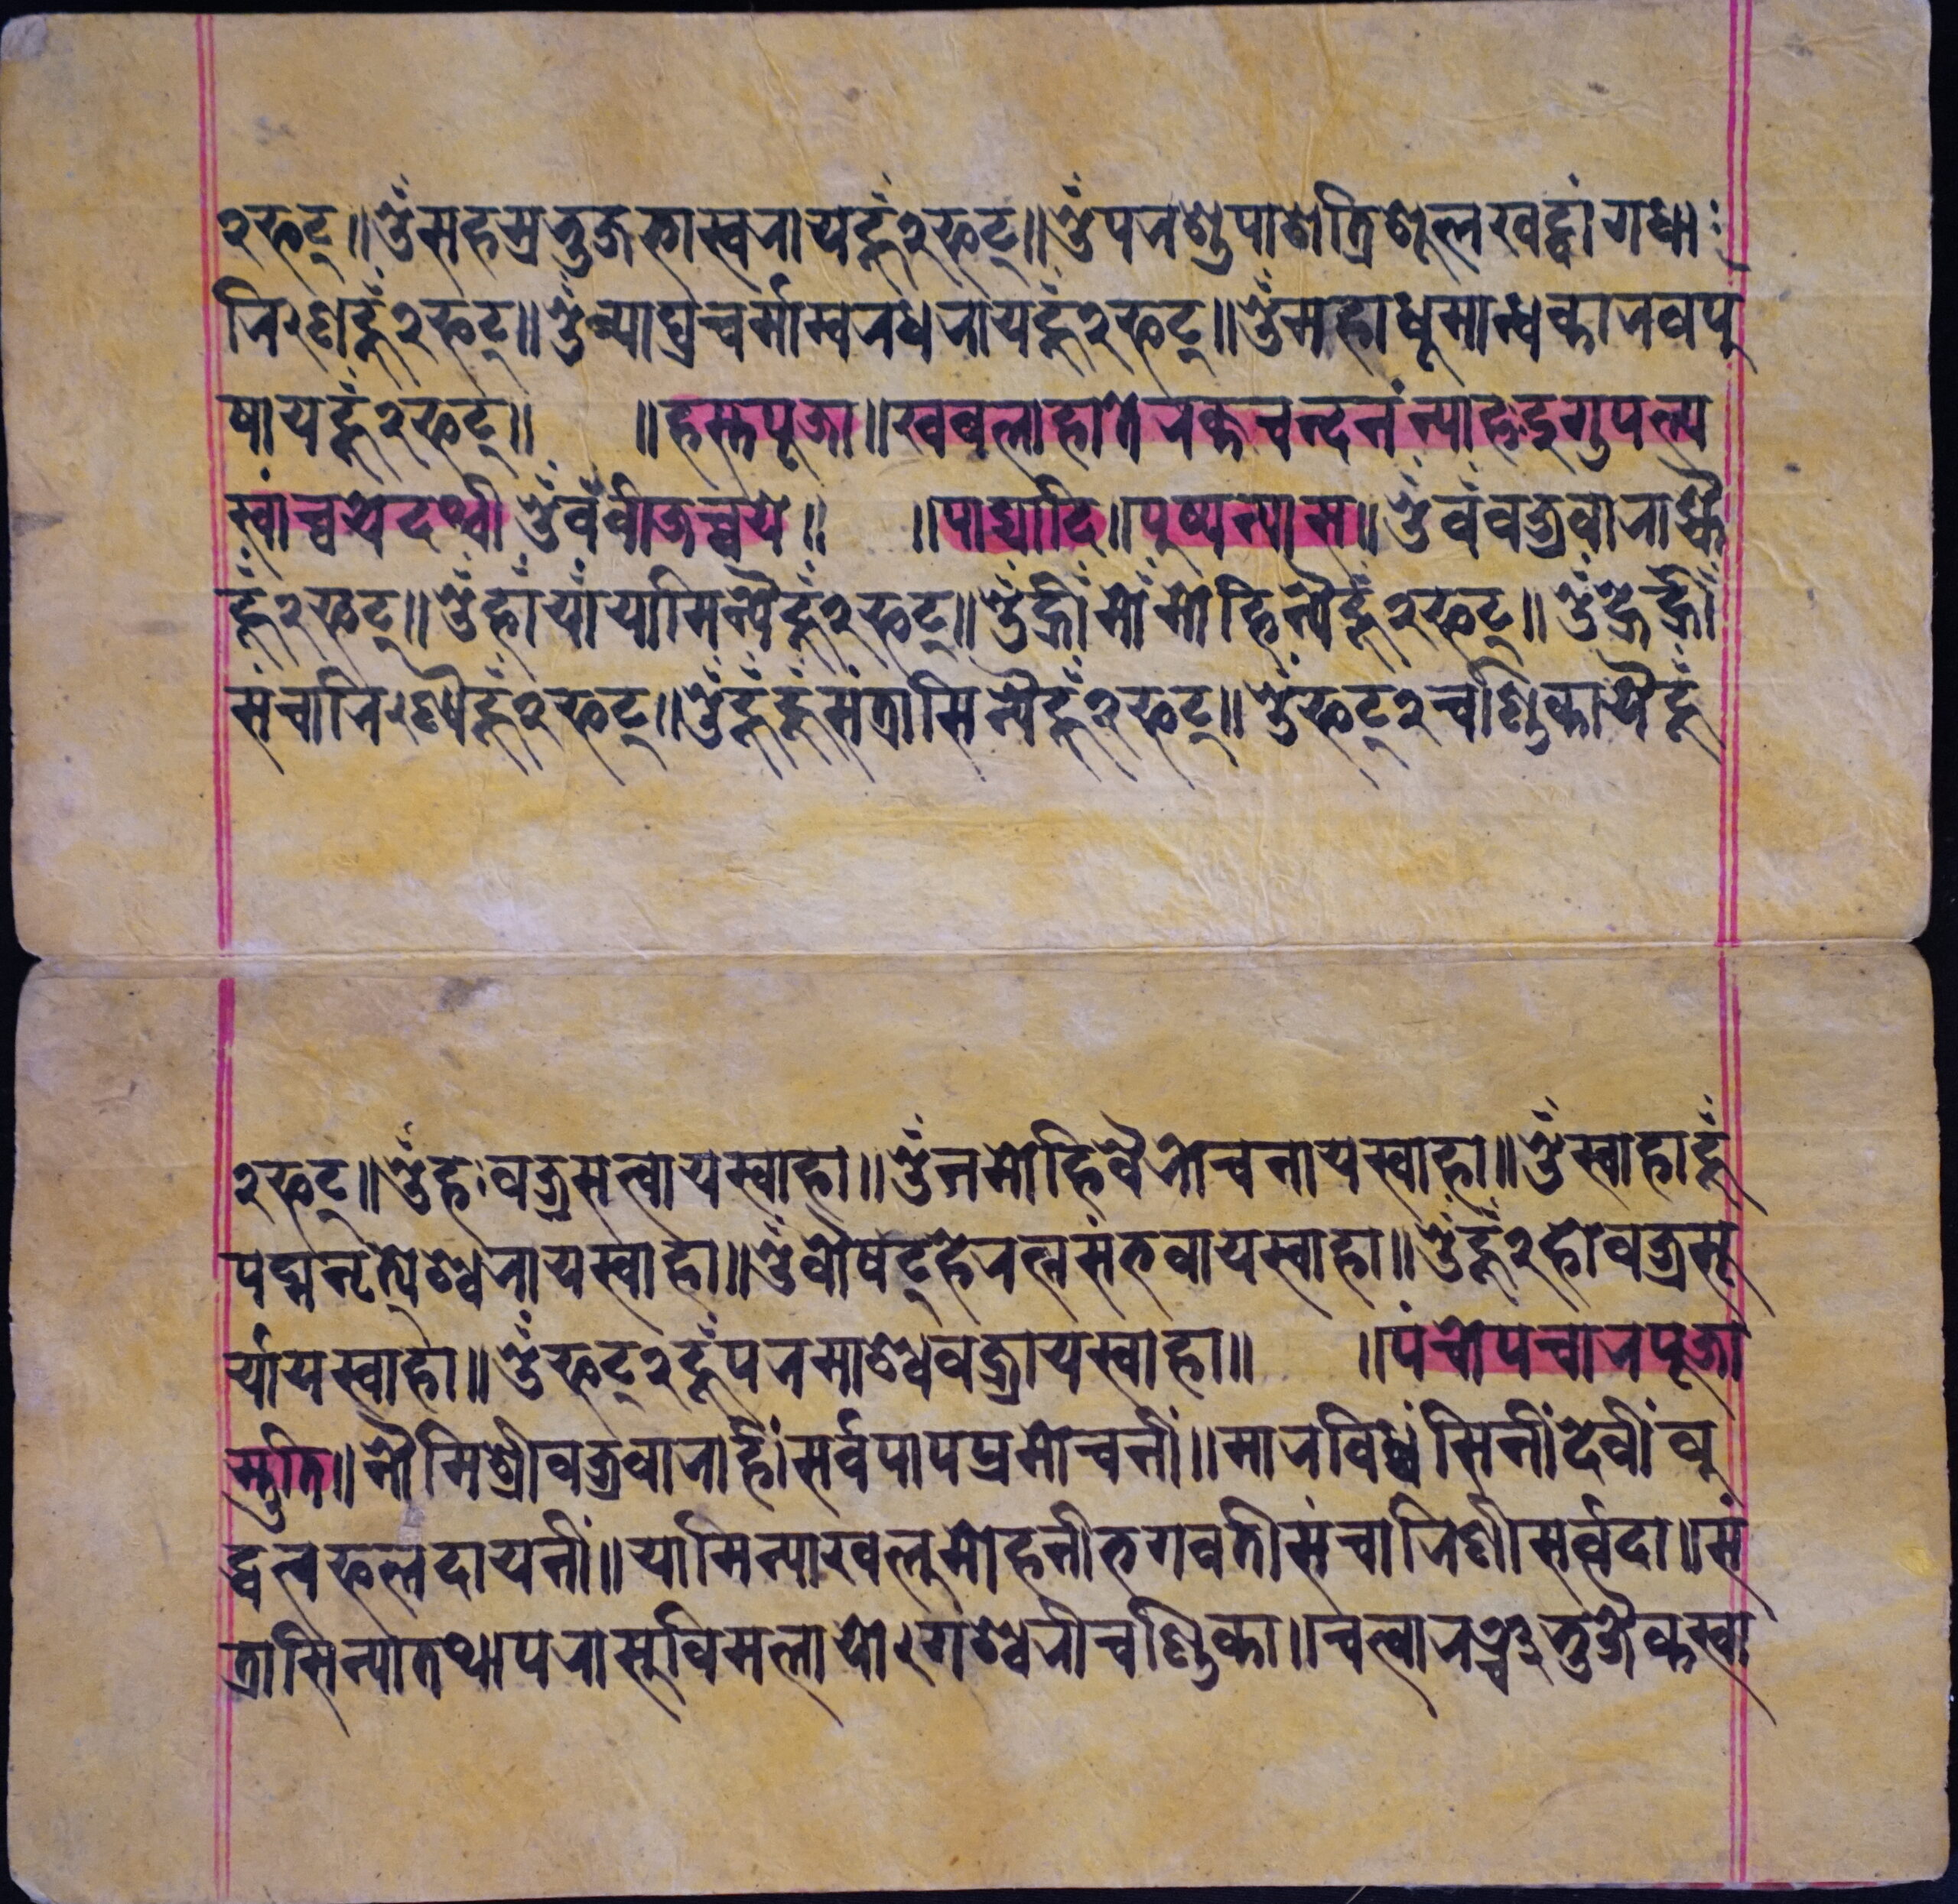 २फट्॥ॐसहस्रभुजभास्वरायहूँ२फट्॥ॐपरशुपाशत्रिशूलखट्वांगधा
रिणेहूँ२फट्॥ॐव्याघ्रचर्माम्वरधरायहूँ२फट्॥ॐमहाधूमान्धकारवपु
षायहूँ२फट्॥ ॥हस्तपूजा॥खवलाहाते रक्तचन्दनं न्याहदुगुपल्य
स्वांच्वयेदथ्वी ॐवँवीजच्वये॥ ॥पाद्यादि॥पुष्पन्यास॥ॐवंवज्रवाराह्यै
हूँ२फट्॥ॐहाँयाँयामिन्यैहूँ२फट्॥ॐह्रीँमोँमोहिन्यैहूँ२फट्॥ॐह्रेह्रीँ
संचारिण्यैहूँ२फट्॥ॐहूँहूँसंत्रासिन्यैहूँ२फट्॥ॐफट्२चण्डिकायैहूँ
२फट्॥ॐहःवज्रसत्वायस्वाहा॥ॐनमोहिवैरोचनायस्वाहा॥ॐस्वाहाहूँ
पद्मनृत्येश्वरायस्वाहा॥ॐवौषट्हेरत्नसंभवायस्वाहा॥ॐहूँ२होवज्रसू
र्यायस्वाहा॥ॐफट्२हूँपरमाश्ववज्रायस्वाहा॥ ॥पंचोपचारपूजा
स्तुति॥नौमिश्रीवज्रवाराहीं सर्वपापप्रमोचनीं॥मारविध्वंसिनींदेवीं वु
द्धत्वफलदायनीं॥यामिन्याखलुमोहनीभगवतीसंचारिणीसर्वदा॥सं
त्रासिन्यातथापरासुविमलायोगेश्वरीचण्डिका॥चत्वारञ्चभुजैकस्वा